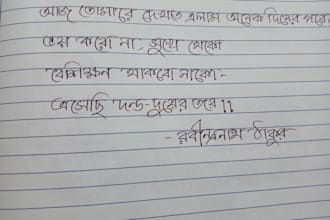 আজ তোমারে দেখতে এলাম অনেক দিনের পরে।
ভয় করো না, সুখে থেকো
বেশিক্ষণ থাকবো নাকো -
এসেছি দন্ড-দুয়ের তরে।।
- রবীন্দ্রনাথ ঠাকুর